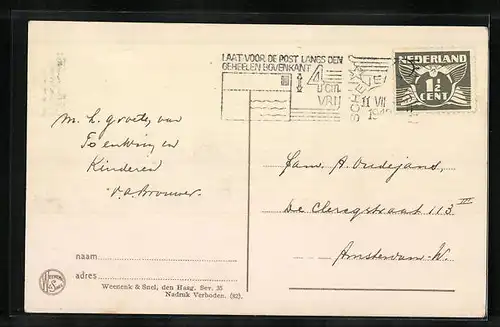 LAAT VOOR DE POST LANGS DEN
GEHEELEN BOVENKANT
4 cm
VRIJ
11 VII
NEDERLAND
1½
CENT
m. h. groeten van
en
Kinderen
v.d. Brouwer.
Fam. A. Oudejans,
De Clercqstraat 113 III
Amsterdam-W.
naam
adres
Weenenk & Snel, den Haag. Ser. 35
Nadruk Verboden. (82).